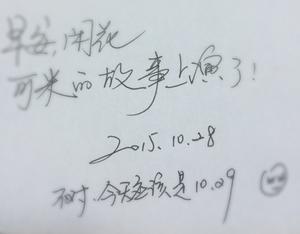 早安,闲花
可米的故事上演了!
2015.10.28
不对.今天应该是10.29